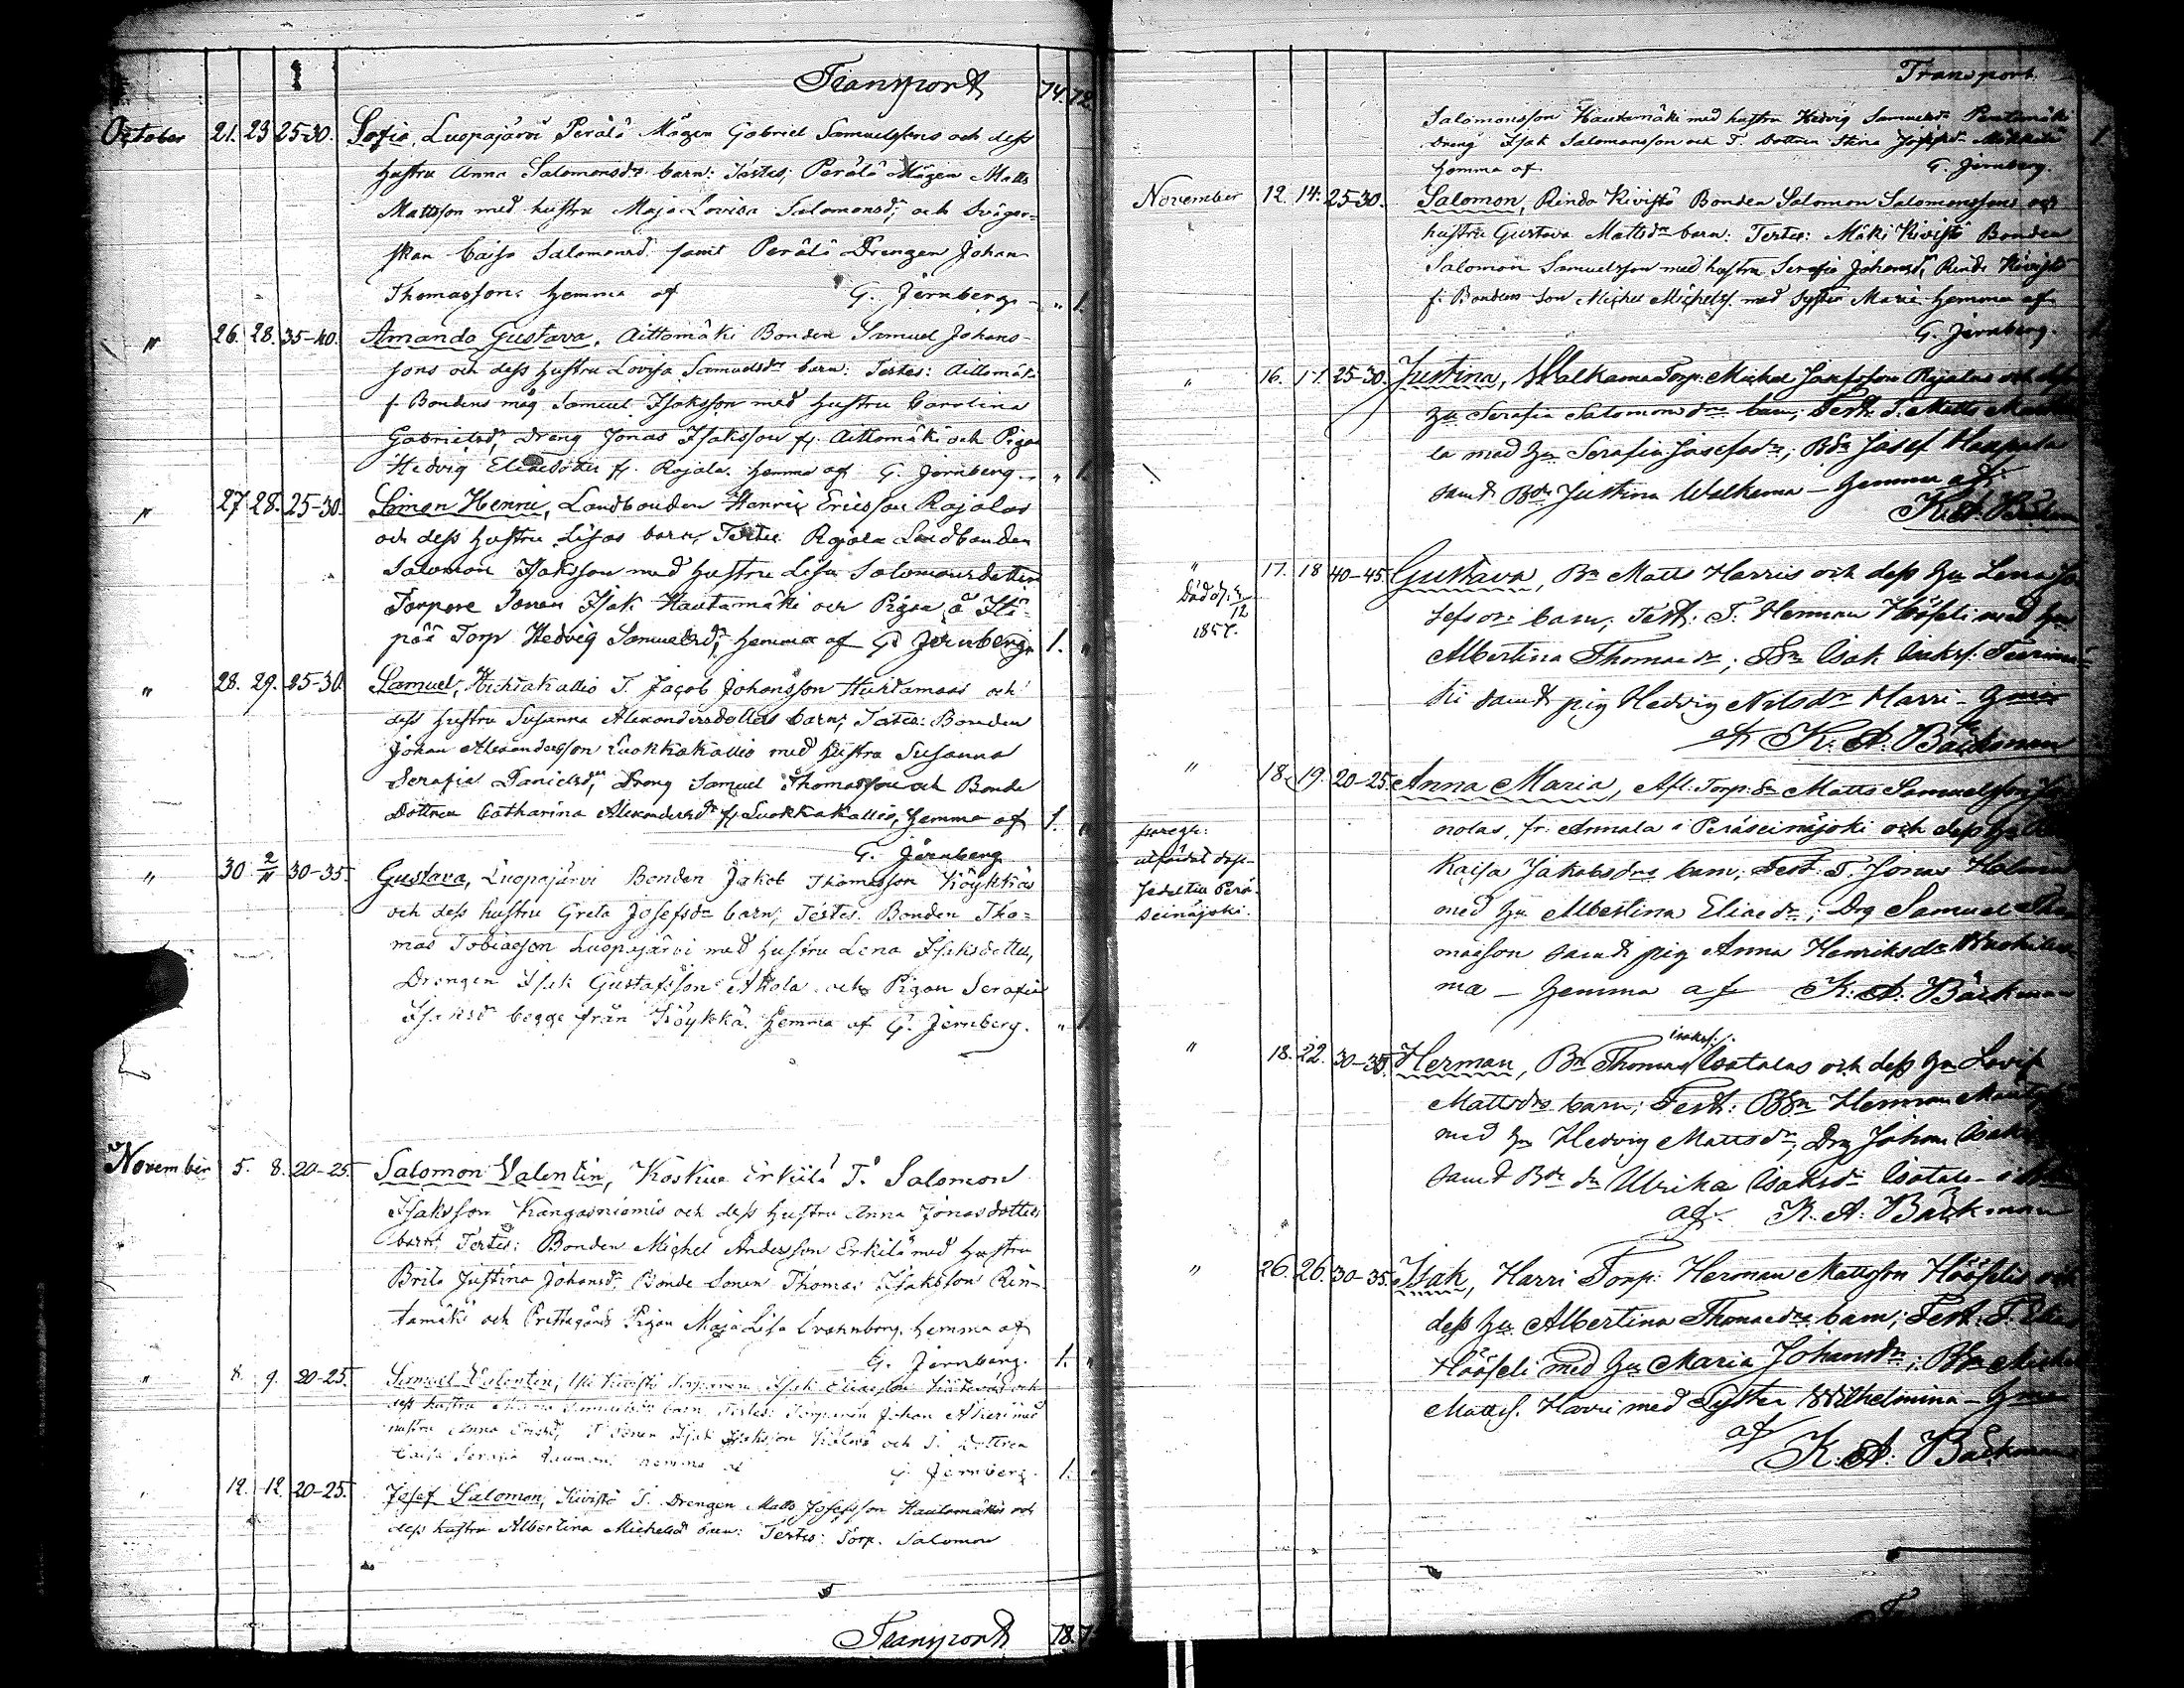 Transport 74. 72.
October 21. 23 25-30. Sofia, Luopajärvi Perälä Mågen Gabriel Samuelssons och dess
hustru Anna Salomonsdrs barn: Testes; Perälä Mågen Matts
Mattsson med hustru Maja Lovisa Salomonsdr, och Sväger-
skan Caisa Salomonsd. samt Perälä Drengen Johan
Thomasson. hemma af G. Jernberg. " 1.
" 26. 28. 35-40. Amanda Gustava, Aittomäki Bonden Samuel Johans-
sons och dess hustru Lovisa Samuelsdrs barn: Testes: Aittomäki
f. Bondens måg Samuel Isaksson med hustru Carolina
Gabrielsdr, Dreng Jonas Isaksson fr. Aittomäki och Pigan
Hedvig Eliaedotter fr. Rajala. hemma af G. Jernberg. " 1.
" 27 28. 25-30. Simon Henric, Landbonden Henric Ericsson Rajalas
och dess hustru Lisas barn, Testes Rajala Landbonden
Salomon Isaksson med hustru Lisa Salomonsdotter
Torpare Sonen Isak Hautamäki och Pigan å Itä-
pää Torp Hedvig Samuelsdr, hemma af G. Jernberg. 1. "
" 28. 29. 25-30. Samuel, T. Jacob Johansson och
dess hustru Susanna Alexandersdotters barn; Testes: Bonden
Johan Alexandersson Luokkakallio med hustru Susanna
Serafia Danielsdr, Dreng Samuel Thomasson och Bonde
Dottren Catharina Alexandersdr fr. Luokkakallio, hemma af 1. "
G. Jernberg
" 30 2/11 30-35. Gustava, Luopajärvi Bonden Jakob Thomasson Köykkäs
och dess hustru Greta Josefsdrs barn; Testes: Bonden Tho=
mas Tobiasson Luopajärvi med hustru Lena Isaksdotter,
Drengen Isak Gustafsson och Pigan Serafia
Isaksdr begge från Köykkä. hemma af G. Jernberg. " 1
November 5. 8. 20-25. Salomon Valentin, Koskue Erkilä T. Salomon
Isaksson Kangasniemis och dess hustru Anna Jonasdotters
barn, Testes: Bonden Michel Andersson Erkilä med hustru
Brita Justina Johansdr. Bonde Sonen Thomas Isaksson Rin-
tamäki och Prestegårds Pigan Maja Lisa hemma af
G. Jernberg. 1. "
" 8. 9. 20-25. Samuel Valentin, Kivistö Torparen Isak Eliasson och
dess hustru Maria Samuelsdrs barn, Testes: Torparen Johan med
hustru Anna T. Sonen Isak Isaksson och T. Dottren
Caisa Serafia hemma af G. Jernberg. 1. "
12. 12. 20-25. Josef Salomon, Kivistö T. Drengen Matts Josefsson Hautamäkis och
dess hustru Albertina Michelsdrs barn: Testes: Torp. Salomon
Transport 78. 7
Transport.
Salomonsson Hautamäki med hustru Hedvig Samuelsdr
Dreng Isak Salomonsson och T. Dottren Stina Josefsdr 1.
hemma af G. Jernberg.
November 12. 14. 25-30. Salomon, Rinda Kivistö Bonden Salomon Salomonssons och
hustru Gustava Mattsdrs barn: Testes: Mäki Kivistö Bonden
Salomon Samuelsson med hustru Serafia Johansdr, Rinda Kivistö
f. Bondens Son Michel Michels. med Syster Maria hemma af
G. Jernberg.
" 16. 17. 25-30. Justina, Walkama Torp: Michel Rajalas och dess
hu Serafia Salomonsdrs barn; Test: T. Matts
la med hu Serafia Josefsdr; Bdn Josef Haapala
samt Bdr Justina Walkama - hemma af
K. A. Bäckman
" 17. 18 40-45. Gustava, Bn Matts Harris och dess hu Lena Jo
Död d. 4/12
1857.
sefsdrs barn; Test: T. Herman Hööseli med hu
Albertina Thomasdr; Isak Isaks.
ki samt pig Hedvig Nilsdr Harri - hma
af K. A. Bäckman
" 18. 19. 20-25. Anna Maria, Afl. Torp: Sn Matts Samuelsson
nolas, fr. Annala i Peräseinäjoki och dess hu
utfärdat dop-
sedel till Perä-
seinäjoki.
Kaisa Jakobsdrs barn; Test: T. Jonas
med hu Albertina Eliaedr; Drg Samuel Tho
masson samt pig Anna Henriksdr
ma - hemma af K. A. Bäckman
" 18. 22. 30-35. Herman, Bn Thomas Isaks. Isotalos och dess hu Lovisa
Mattsdrs barn; Test: Bdn Herman
med hu Hedvig Mattsdr; Drg Johan
samt Bdr dr Ulrika Isaksdr Isotalo -
af K. A. Bäckman
" 26. 26. 30-35. Isak, Harri Torp: Herman Mattsson Hööselis och
dess hu Albertina Thomasdrs barn; Test: T. Elias
Hööseli med hu Maria Johansdr; Bdn Michel
Matts. Harri med Syster Wilhelmina - hma
af K. A. Bäckman